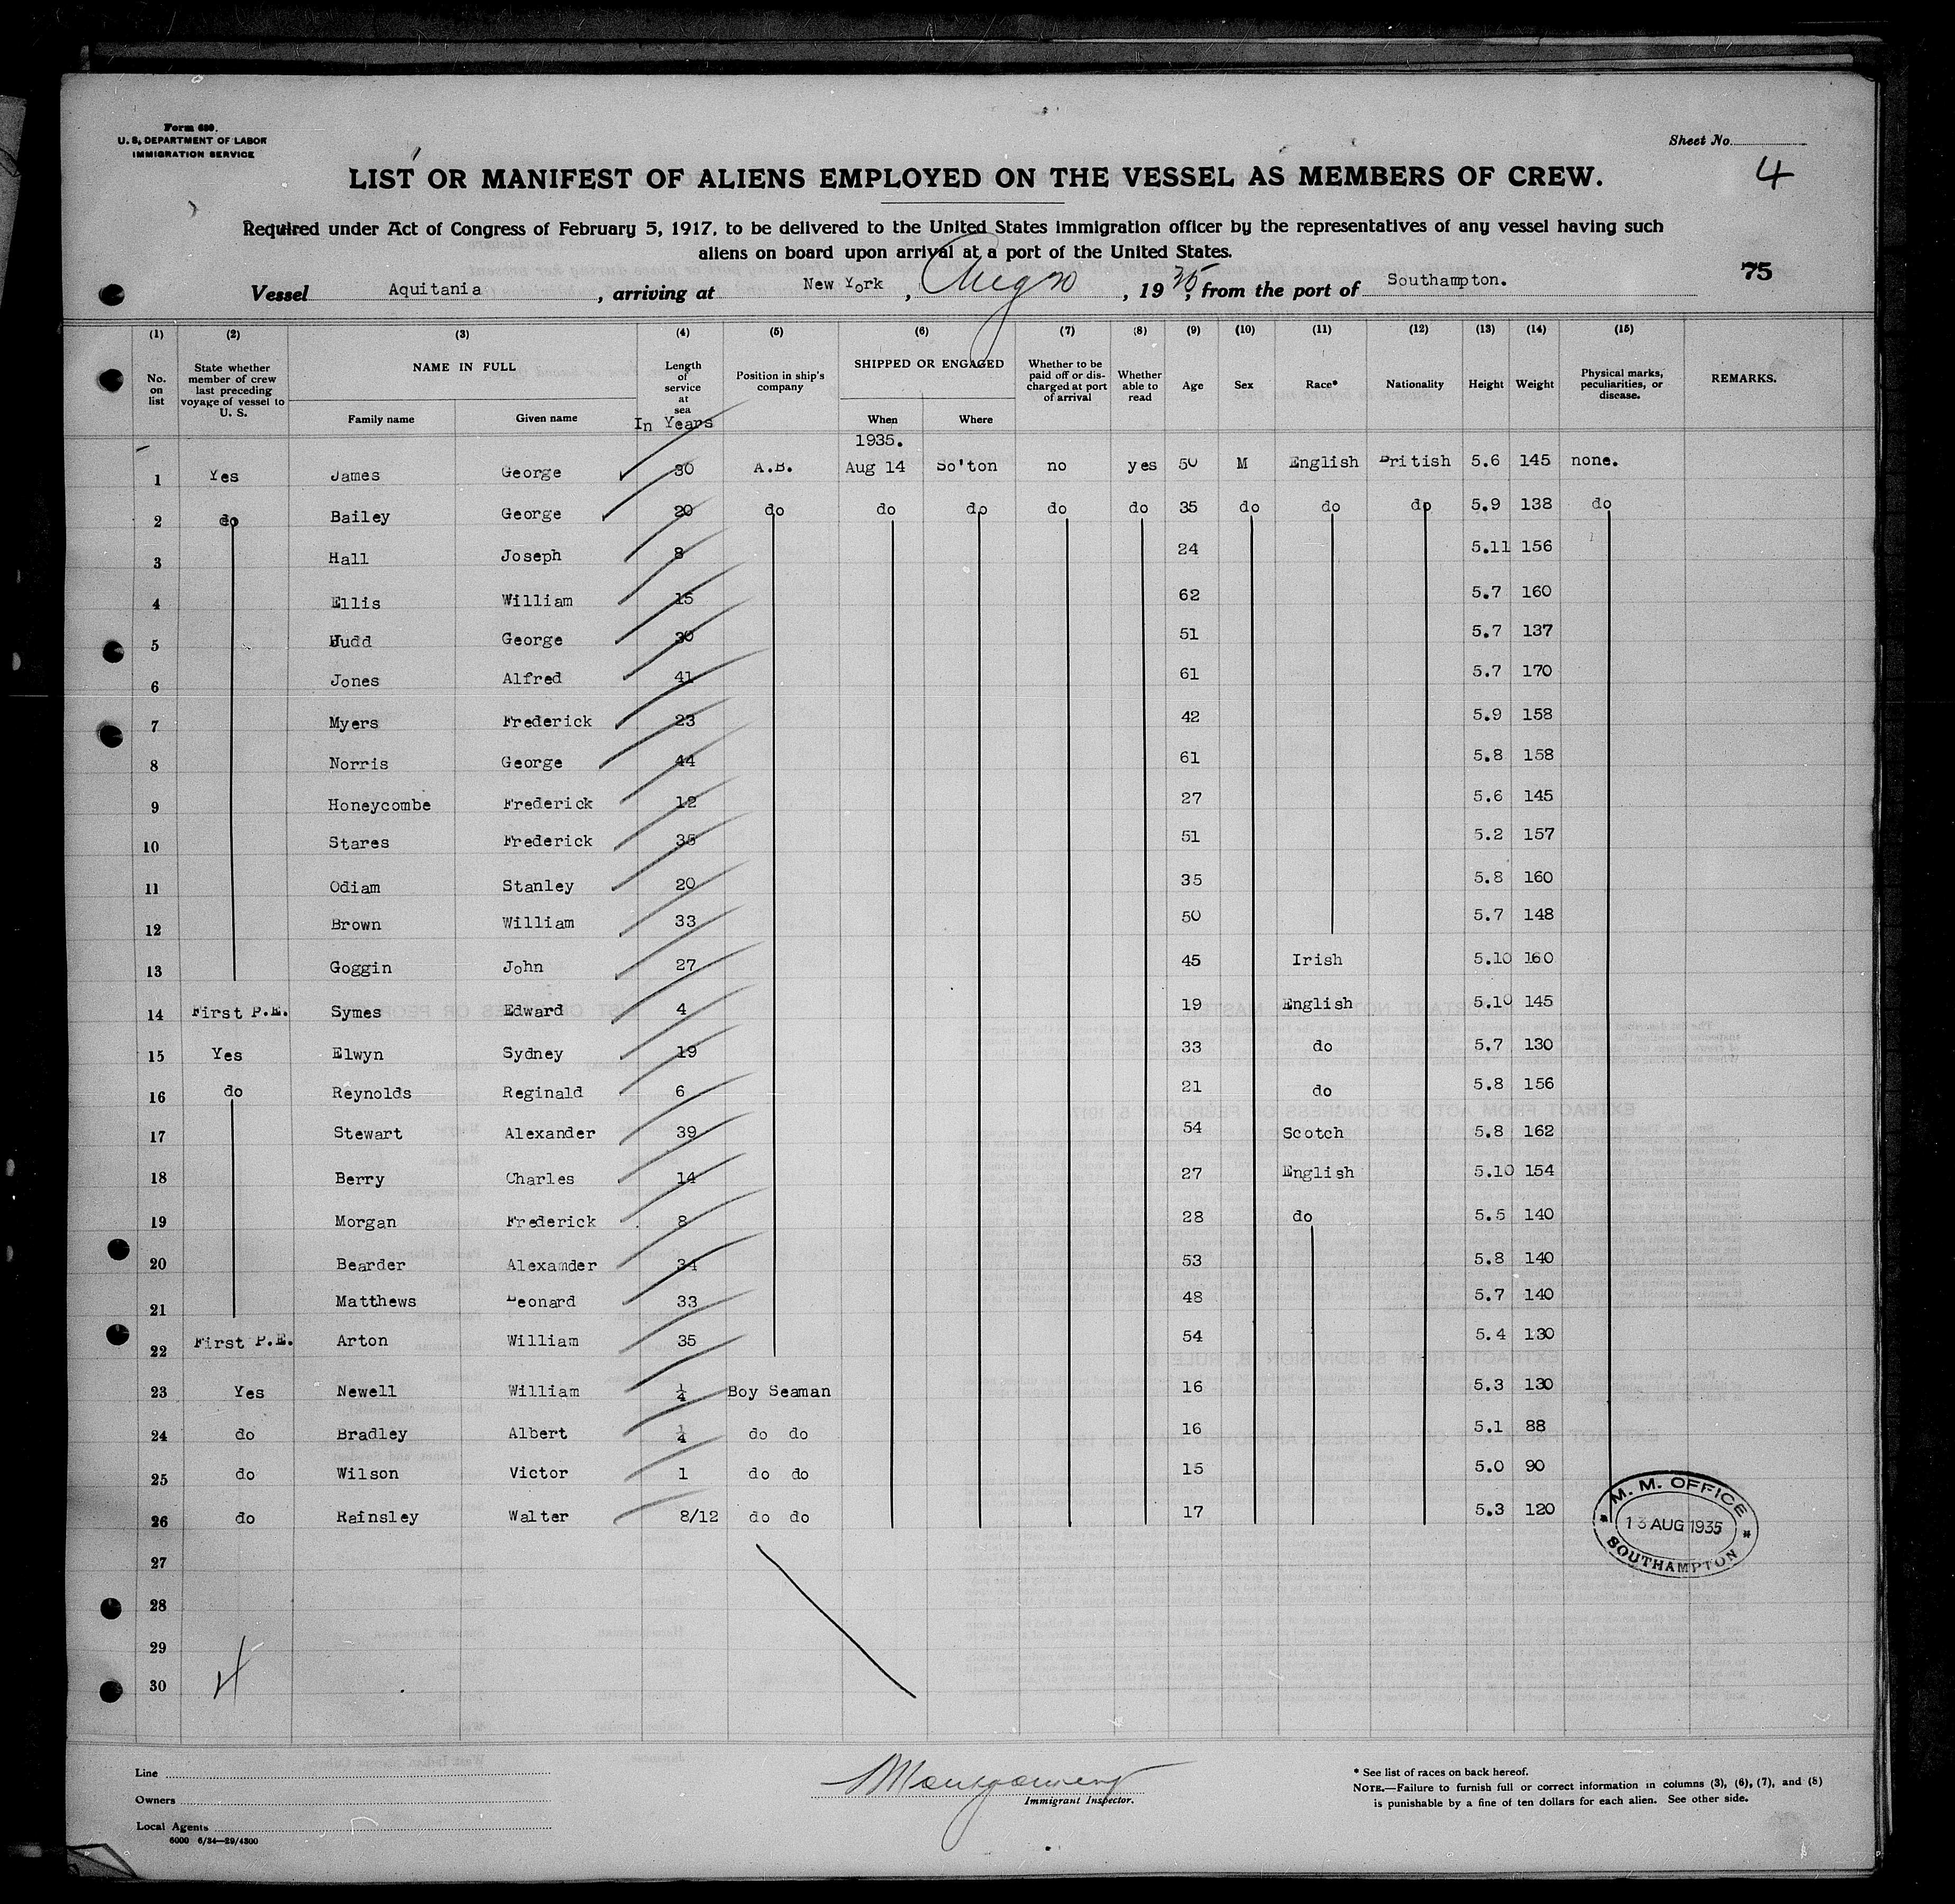 Form 680.
U. S. DEPARTMENT OF LABOR
IMMIGRATION SERVICE
Sheet No.
4
LIST OR MANIFEST OF ALIENS EMPLOYED ON THE VESSEL AS MEMBERS OF CREW.
Required under Act of Congress of February 5, 1917, to be delivered to the United States immigration officer by the representatives of any vessel having such
aliens on board upon arrival at a port of the United States.
75
Vessel Aquitania, arriving at New York, Aug 20, 1935, from the port of Southampton.
(1) (2) (3) (4) (5) (6) (7) (8) (9) (10) (11) (12) (13) (14) (15)
No. on list State whether member of crew last preceding voyage of vessel to U. S. NAME IN FULL Family name Given name Length of service at sea In Years Position in ship's company SHIPPED OR ENGAGED When Where Whether to be paid off or discharged at port of arrival Whether able to read Age Sex Race* Nationality Height Weight Physical marks, peculiarities, or disease. REMARKS.
1935.
1 Yes James George 30 A.B. Aug 14 So'ton no yes 50 M English British 5.6 145 none.
2 do Bailey George 20 do do do do do 35 do do do 5.9 138 do
3 Hall Joseph 8 24 5.11 156
4 Ellis William 15 62 5.7 160
5 Hudd George 30 51 5.7 137
6 Jones Alfred 41 61 5.7 170
7 Myers Frederick 23 42 5.9 158
8 Norris George 44 61 5.8 158
9 Honeycombe Frederick 12 27 5.6 145
10 Stares Frederick 35 51 5.2 157
11 Odiam Stanley 20 35 5.8 160
12 Brown William 33 50 5.7 148
13 Goggin John 27 45 Irish 5.10 160
14 First P.E. Symes Edward 4 19 English 5.10 145
15 Yes Elwyn Sydney 19 33 do 5.7 130
16 do Reynolds Reginald 6 21 do 5.8 156
17 Stewart Alexander 39 54 Scotch 5.8 162
18 Berry Charles 14 27 English 5.10 154
19 Morgan Frederick 8 28 do 5.5 140
20 Bearder Alexamder 34 53 5.8 140
21 Matthews Leonard 33 48 5.7 140
22 First P.E. Arton William 35 54 5.4 130
23 Yes Newell William ¼ Boy Seaman 16 5.3 130
24 do Bradley Albert ¼ do do 16 5.1 88
25 do Wilson Victor 1 do do 15 5.0 90
26 do Rainsley Walter 8/12 do do 17 5.3 120
27
28
29
30
M. M. OFFICE
13 AUG 1935
SOUTHAMPTON
Line
Owners
Local Agents
6000 6/34—29/4300
Montgomery
Immigrant Inspector.
* See list of races on back hereof.
NOTE.—Failure to furnish full or correct information in columns (3), (6), (7), and (8)
is punishable by a fine of ten dollars for each alien. See other side.